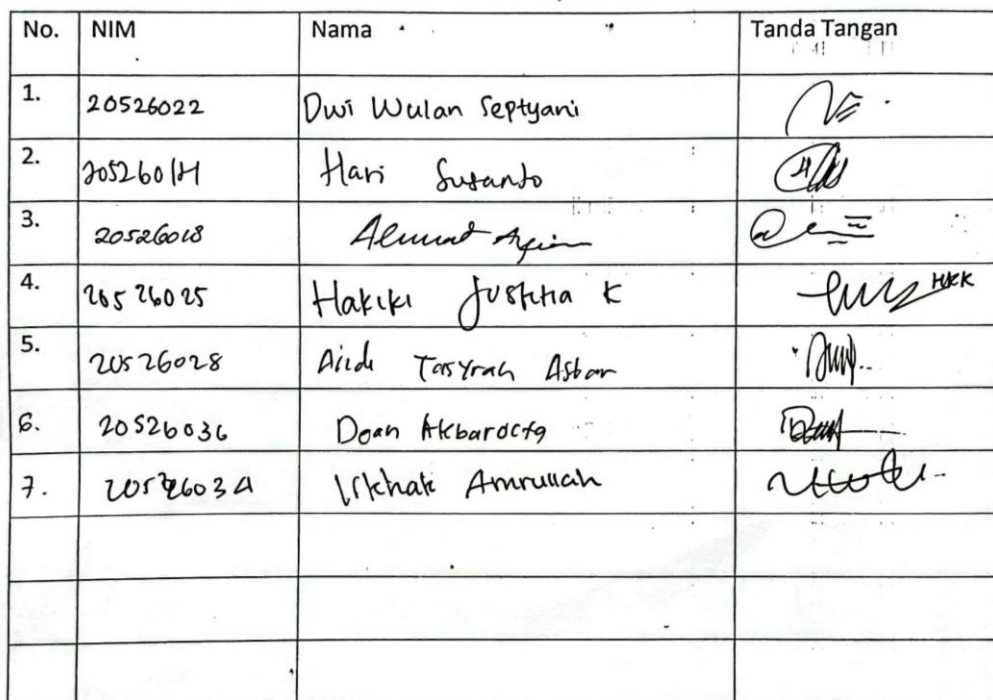 No. NIM Nama Tanda Tangan
1. 20526022 Dwi Wulan Septyani
2. 20526014 Hari Susanto
3. 20526018
4. 20526025 Hakiki Justitia K HKK
5. 20526028 Tasyrah Asbar
6. 20526036 Doan
7. 20526034 Amrullah